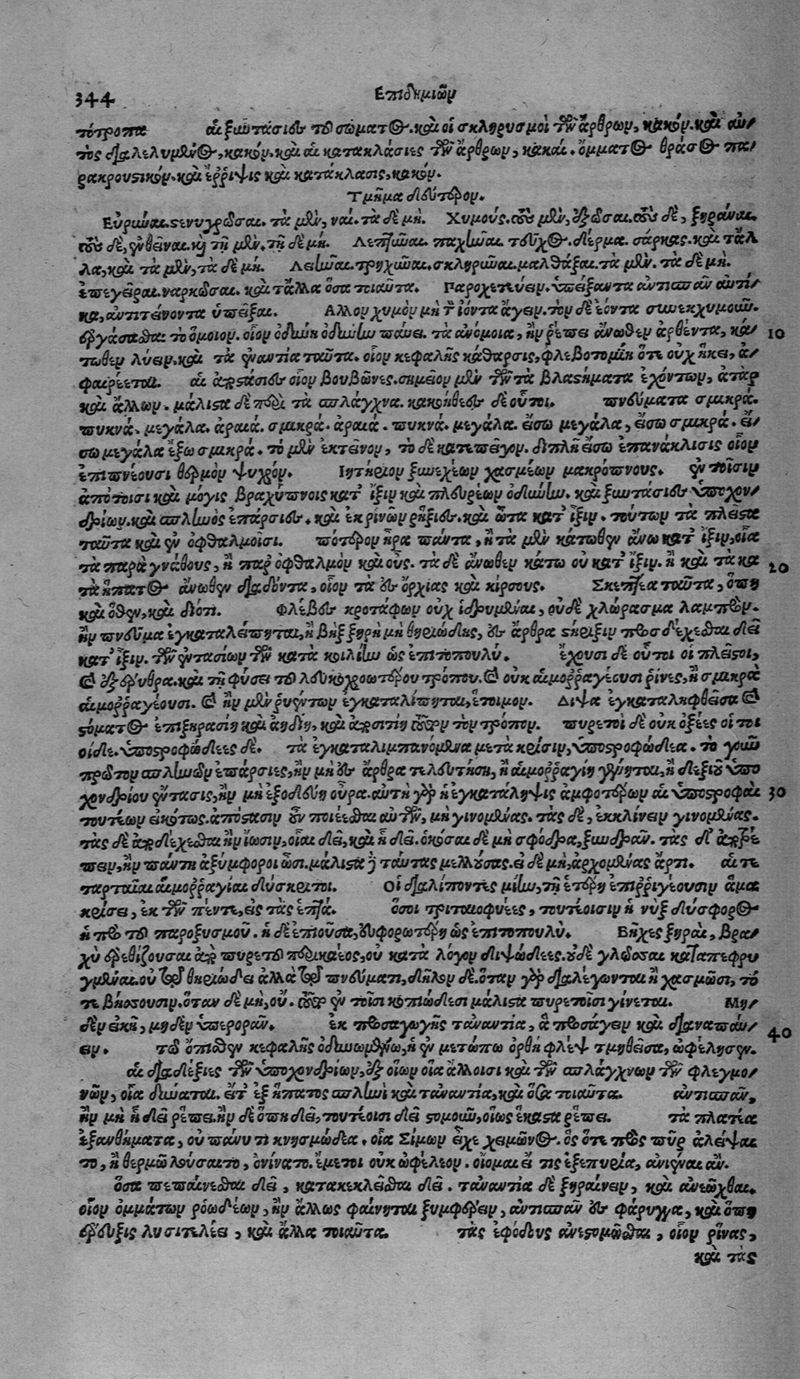 344
Ἐπιδημιῶν
τότροπα αἱ ξυντάσιες τοῦ σώματος. καὶ οἱ σκληρυσμοὶ τῶν ἄρθρων, κακόν. καὶ αὐ/
τὸς διαλελυμένος, κακόν. καὶ αἱ κατακλάσιες τῶν ἄρθρων, κακαί. ὄμματος θράσος πα/
ρακρουστικόν. καὶ ἔρριψις καὶ κατάκλασις, κακόν.
Τμῆμα δεύτερον.
Εὐρῦναι. στενυγρῶσαι. τὰ μὲν, ναί. τὰ δὲ μή. Χυμούς. τοὺς μὲν, ἐξῶσαι. τοὺς δὲ, ξηρᾶναι.
τοὺς δὲ, ἐνθεῖναι. καὶ τῇ μὲν. τῇ δὲ μή. Λεπτῦναι. παχῦναι. τεῦχος. δέρμα. σάρκας. καὶ τἄλ
λα, καὶ τὰ μὲν, τὰ δὲ μή. Λειῦναι. τρηχῦναι. σκληρῦναι. μαλθάξαι. τὰ μὲν. τὰ δὲ μή.
ἐπεγεῖραι. ναρκῶσαι. καὶ τἄλλα ὅσα τοιαῦτα. Παροχετεύειν. ὑπείξαντα ἀντισπᾶν αὐτί/
κα, ἀντιτείνοντα ὑπεῖξαι. Ἄλλον χυμὸν μὴ τὸν ἰόντα ἄγειν. τὸν δὲ ἰόντα συνεκχυμοῦν.
ἐργάσασθαι τὸ ὅμοιον. οἷον ὀδύνη ὀδύνην παύει. τὰ ἀνόμοια, ἢν ῥέπει ἄνωθεν ἀρθέντα, κά/ 10
τωθεν λύειν. καὶ τὰ ἐναντία ταῦτα. οἷον κεφαλῆς κάθαρσις, φλεβοτομίη ὅτε οὐχ ἥκει, ἀ/
φαιρέεται. αἱ ἀποστάσιες οἷον βουβῶνες. σημεῖον μὲν τῶν τὰ βλαστήματα ἐχόντων, ἀτὰρ
καὶ ἄλλων. μάλιστα δὲ περὶ τὰ σπλάγχνα. κακοήθεες δὲ οὗτοι. πνεύματα σμικρά.
πυκνά. μεγάλα. ἀραιά. σμικρά. ἀραιά. πυκνά. μεγάλα. ἔσω μεγάλα, ἔσω σμικρά. ἔ/
σω μεγάλα ἔξω σμικρά. τὸ μὲν ἐκτεῖνον, τὸ δὲ κατεπεῖγον. διπλῆ ἔσω ἐπανάκλισις οἷον
ἐπιπνέουσι θερμὸν ψυχρόν. Ἰητήριον ξυνεχέων χασμέων μακρόπνους. ἐν τοῖσιν
ἀπότοισι καὶ μόγις βραχύπνοις κατ' ἴξιν καὶ πλευρέων ὀδύνην. καὶ ξυντάσιες ὑποχον/
δρίων. καὶ σπληνὸς ἐπάρσιες. καὶ ἐκ ῥινῶν ῥήξιες. καὶ ὦτα κατ' ἴξιν. τούτων τὰ πλεῖστα
ταῦτα καὶ ἐν ὀφθαλμοῖσι. πότερον ἦρα πάντα, ἢ τὰ μὲν κάτωθεν ἄνω κατ' ἴξιν, οἷα
τὰ παρὰ γνάθους, ἢ παρ' ὀφθαλμὸν καὶ οὖς. τὰ δὲ ἄνωθεν κάτω οὐ κατ' ἴξιν. ἢ καὶ τὰ κα 20
τὰ ἥπατος ἄνωθεν διαδόντα, οἷον τὰ ἐς ὄρχιας καὶ κίρσους. Σκεπτέα ταῦτα, ὅπῃ
καὶ ὅθεν, καὶ διότι. Φλέβες κροτάφων οὐχ ἱδρυμέναι, οὐδὲ χλώρασμα λαμπρόν.
ἢν πνεῦμα ἐγκαταλείπηται, ἢ βὴξ ξηρὴ μὴ θηριώδης, ἐς ἄρθρα στήριξιν προσδέχεσθαι δεῖ
κατ' ἴξιν. τῶν ἐντασίων τῶν κατὰ κοιλίην ὡς ἐπιτοπουλύ. ἔχουσι δὲ οὗτοι οἱ πλεῖστοι,
καὶ ἐξέρυθρα. καὶ τῇ φύσει τοῦ λευκοχρωτέρου τρόπου. καὶ οὐκ αἱμορραγέουσι ῥῖνες, ἢ σμικρὰ
αἱμορραγέουσι. καὶ ἢν μὲν ῥυέντων ἐγκαταλίπηται, ἕτοιμον. Δίψα ἐγκαταληφθεῖσα καὶ
στόματος ἐπιξηρασίη καὶ ἀηδίη, καὶ ἀποσιτίη τοῦτον τὸν τρόπον. πυρετοὶ δὲ οὐκ ὀξέες οἱ τοι
οίδε. ὑποστροφώδεες δέ. τὰ ἐγκαταλιμπανόμενα μετὰ κρίσιν, ὑποστροφώδεα. τὸ γοῦν
πρῶτον σπληνῶν ἐπάρσιες, ἢν μὴ ἐς ἄρθρα τελευτήσῃ, ἢ αἱμορραγίη γένηται, ἢ δεξιοῦ ὑπο
χονδρίου ἔντασις, ἢν μὴ ἐξοδεύῃ οὖρα. αὕτη γὰρ ἡ ἐγκατάληψις ἀμφοτέρων αἱ ὑποστροφαὶ 30
τουτέων εἰκότως. ἀπόστασιν οὖν ποιέεσθαι αὐτῶν, μὴ γινομένας. τὰς δὲ, ἐκκλίνειν γινομένας.
τὰς δὲ ἀποδέχεσθαι ἢν ἴωσιν, οἷαι δεῖ, καὶ ᾗ δεῖ. ὁκόσαι δὲ μὴ σφόδρα, ξυνδρᾶν. τὰς δ' ἀποτρέ
πειν, ἢν πάντη ἀξύμφοροι ὦσι. μάλιστα δὲ ταύτας μελλούσας. εἰ δὲ μὴ, ἀρχομένας ἄρτι. αἱ τε
ταρταῖαι αἱμορραγίαι δύσκριτοι. Οἱ διαλίποντες μίην, τῇ ἑτέρῃ ἐπιρριγέουσιν ἅμα
κρίσει, ἐκ τῶν πέντε, εἰς τὰς ἑπτά. ὅσοι τριταιοφυέες, τουτέοισιν ἡ νὺξ δύσφορος
ἡ πρὸ τοῦ παροξυσμοῦ. ἡ δὲ ἐπιοῦσα, εὐφορωτέρη ὡς ἐπιτοπουλύ. Βῆχες ξηραὶ, βρα/
χὺ ἐρεθίζουσαι ἀπὸ πυρετοῦ περικαέος, οὐ κατὰ λόγον διψώδεες. οὐδὲ γλῶσσαι καταπεφρυ
γμέναι. οὐ τῷ θηριώδει ἀλλὰ τῷ πνεύματι, δῆλον δέ. ὅταν γὰρ διαλέγωνται ἢ χασμῶσι, τό
τε βήσσουσιν. ὅταν δὲ μὴ, οὔ. τοῦτο ἐν τοῖσι κοπιώδεσι μάλιστα πυρετοῖσι γίνεται. Μη/
δὲν εἰκῆ, μηδὲν ὑπερορᾶν. ἐκ προσαγωγῆς τἀναντία, ἃ προσάγειν καὶ διαναπαύ/ 40
ειν. τῷ ὄπισθεν κεφαλῆς ὀδυνωμένῳ, ἡ ἐν μετώπῳ ὀρθὴ φλὲψ τμηθεῖσα, ὠφέλησεν.
αἱ διαδέξιες τῶν ὑποχονδρίων, ἐξ οἵων οἷα ἄλλοισι καὶ τῶν σπλάγχνων τῶν φλεγμο/
νῶν, οἷα δύναται. εἴτ' ἐξ ἥπατος σπληνὶ καὶ τἀναντία, καὶ ὅσα τοιαῦτα. ἀντισπᾶν,
ἢν μὴ ᾗ δεῖ ῥέπει. ἢν δὲ ὅπῃ δεῖ, τουτέοισι δεῖ στομοῦν, οἵως ἕκαστα ῥέπει. τὰ πλατέα
ἐξανθήματα, οὐ πάνυ τι κνησμώδεα. οἷα Σίμων εἶχε χειμῶνος. ὃς ὅτε πρὸς πῦρ ἀλείψαι
το, ἢ θερμῷ λούσαιτο, ὀνίνατο. ἔμετοι οὐκ ὠφέλεον. οἴομαι εἴ τις ἐξεπυρία, ἀνιέναι ἄν.
ὅσα πεπαίνεσθαι δεῖ, κατακεκλεῖσθαι δεῖ. τἀναντία δὲ ξηραίνειν, καὶ ἀνεῷχθαι.
οἷον ὀμμάτων ῥοωδέων, ἢν ἄλλως φαίνηται ξυμφέρειν, ἀντισπᾶν ἐς φάρυγγα, καὶ ὅπῃ
ἔρευξις λυσιτελέει, καὶ ἄλλα τοιαῦτα. τὰς ἐφόδους ἀνεστομῶσθαι, οἷον ῥῖνας,
καὶ τὰς